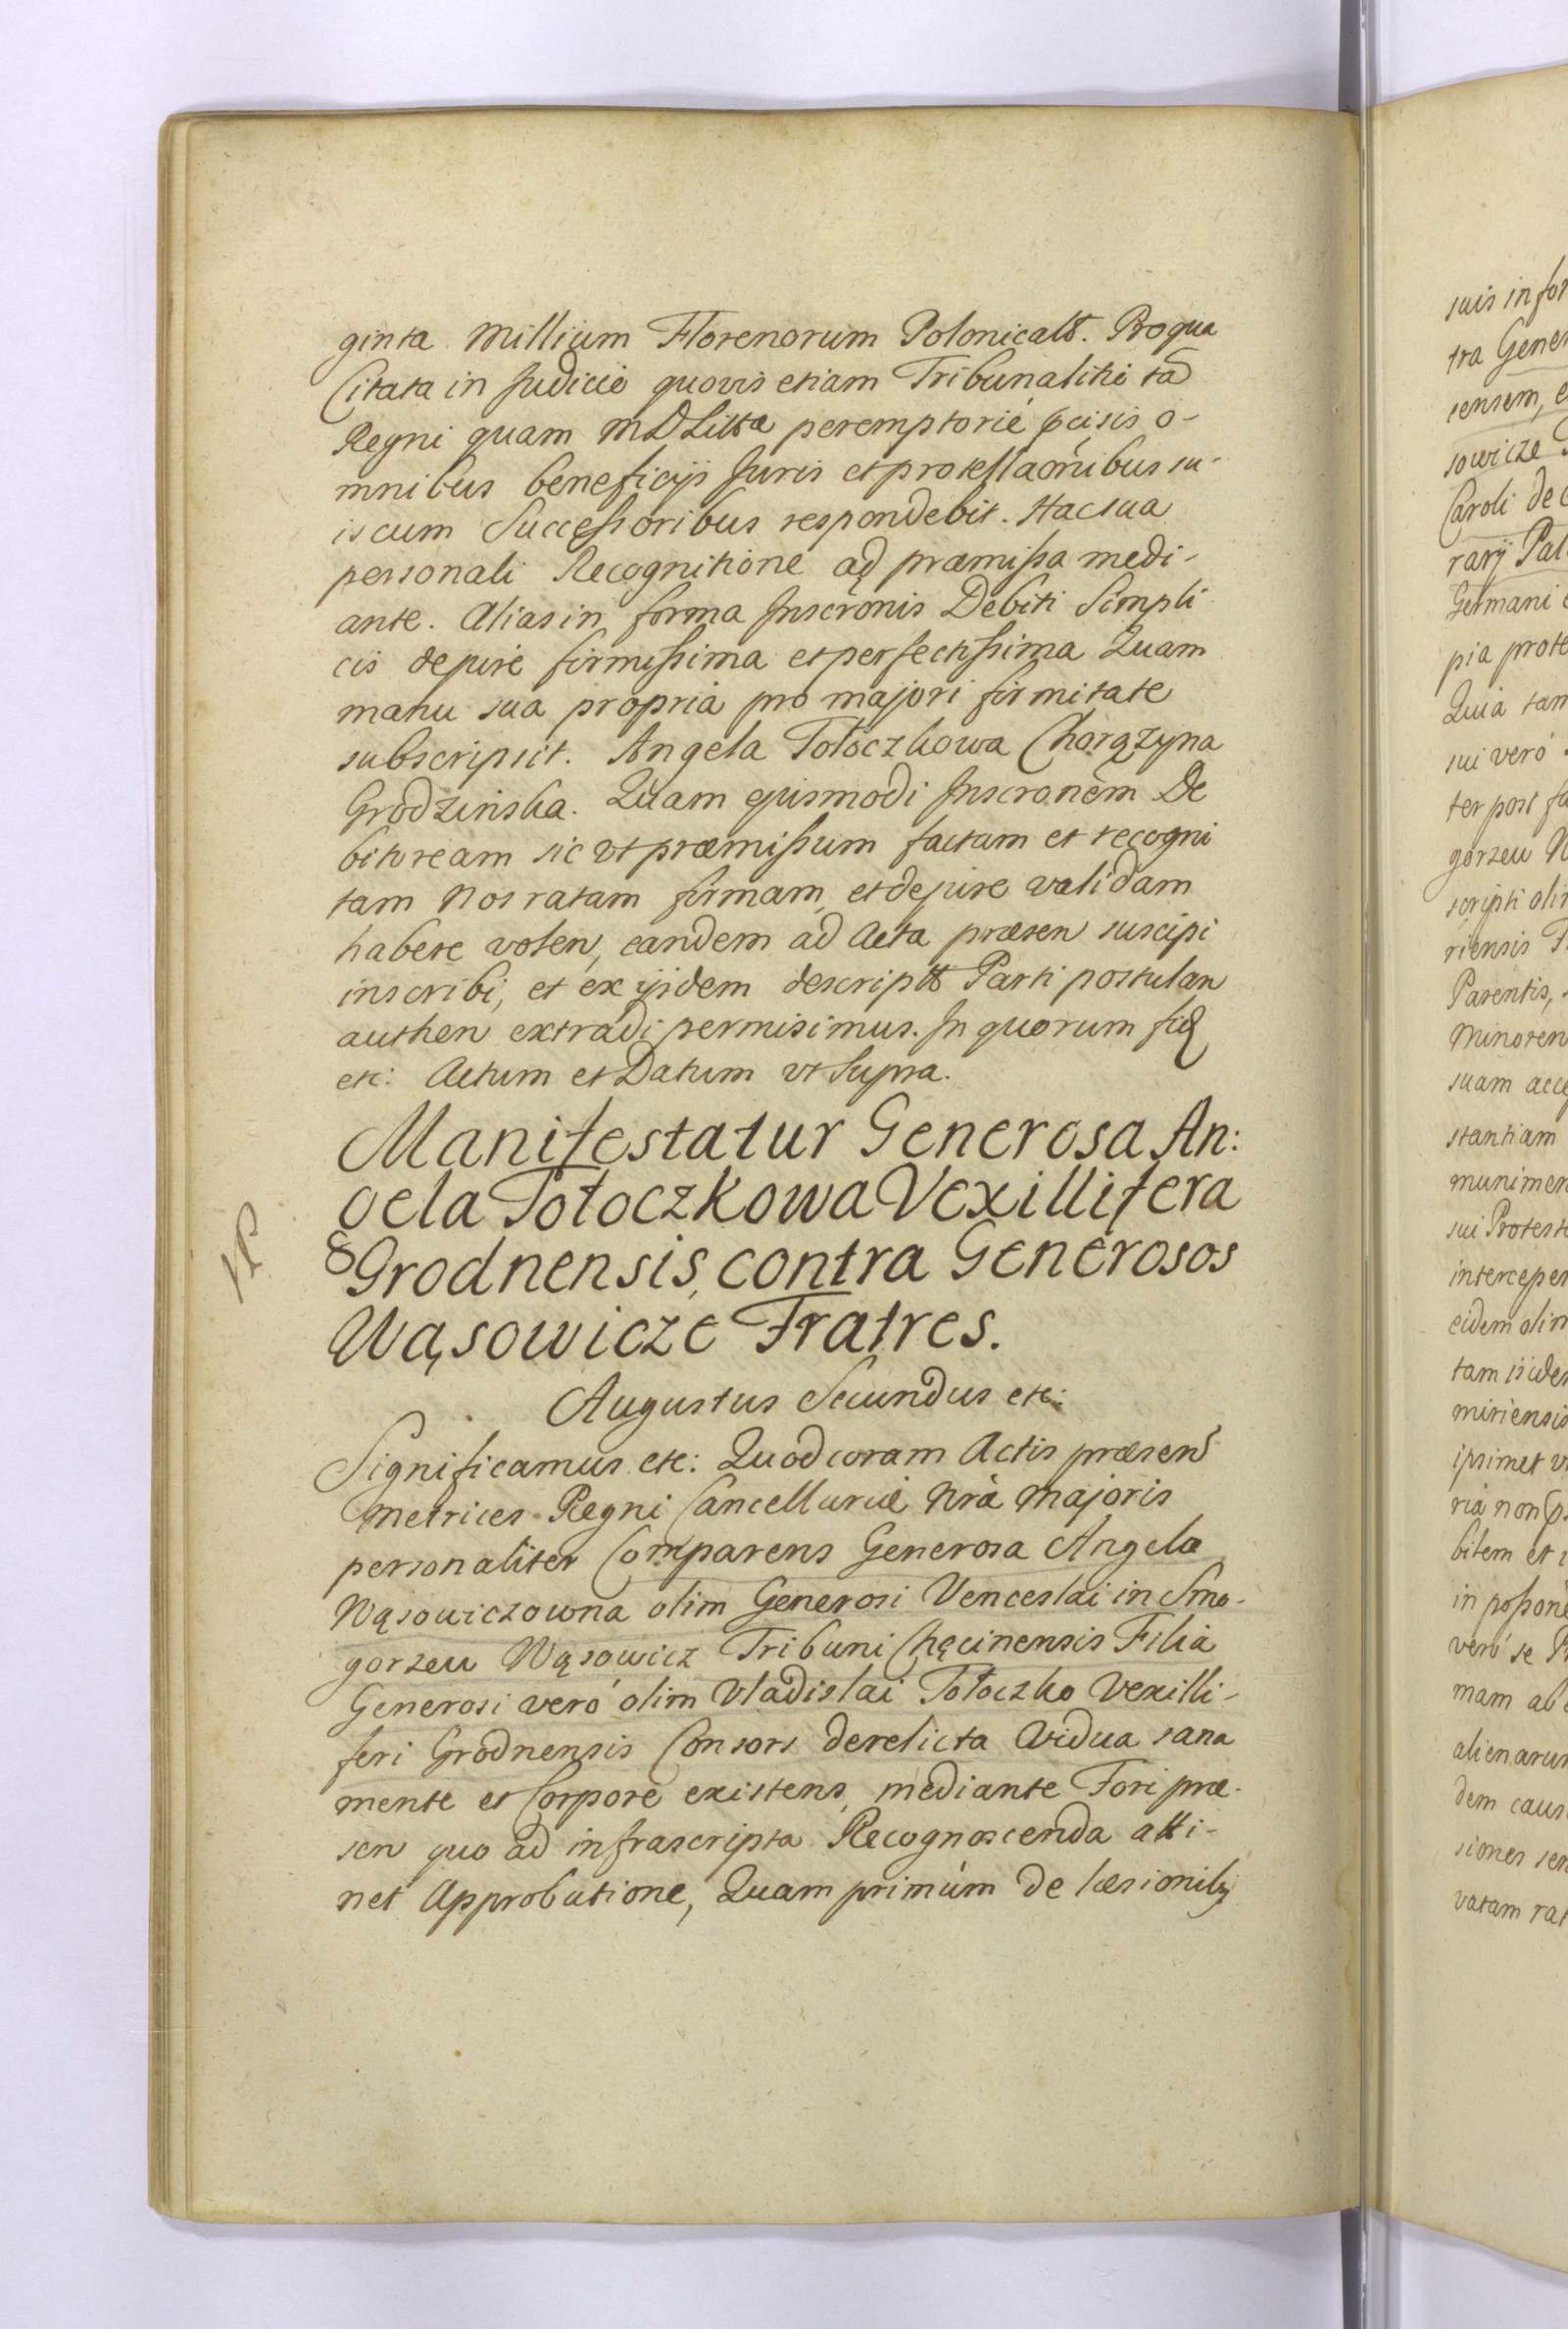 ginta Millium Florenorum Polonical. Pro qua
Citata in Judicio quovis etiam Tribunalitio tã
Regni quam M D Litt͠a peremptorié pcisis o-
mnibus beneficijs Juris et protellaõnibus su-
is cum Successoribus respondebit. Hac sua
personali Recognitione ad præmissa medi-
ante. Alias in forma Inscrõnis Debiti Simpli
cis de jure firmissima et perfectissima Quam
manu sua propria pro majori firmitate
subscripsit. Angela Tołoczkowa Chorązyna
Grodzińska. Quam ejusmodi Inscronẽm De
bitoream sic vt præmissum factam et recogni
tam Nos ratam firmam, et de jure validam
habere volen, eandem ad Acta præsen suscipi
inscribi, et ex ijsdem descript Parti postulan
authen extradi permisimus. In quorum fid
etc: Actum et Datum vt Supra.
Manifestatur Generosa An:
gela Tołoczkowa Vexillifera
Grodnensis, contra Generosos
Wąsowicze Fratres.
Augustus Secundus etc:
Significamus etc: Quod coram Actis præsen
Metrices Regni Cancellariæ Nrã Majoris
personaliter Comparens Generosa Angela
Wąsowiczowna olim Generosi Venceslai in Smo-
gorzew Wąsowicz Tribuni Chęcinensis Filia
Generosi veró olim Vladislai Tołoczko Vexilli-
feri Grodnensis Consors derelicta Vidua sana
mente et Corpore existens, mediante Fori præ-
sen quo ad infrascripta Recognoscenda atti-
net Approbatione, Quam primúm de læsionibq
suis in for
tra Gener
sensem, e
sowicze
Caroli de
rarij Pal
Germani
pia prote
Quia tam
sui veró
ter post fa
gorzew W
scripti oli
riensis F
Parentis,
Minoren
suam acce
stantiam
munimen
sui Protest
interceper
eidem olim
tam ijsdem
miriensis
ipsimet v
ria non
bitem et
in possone
veró se P
mam ab
alienarum
dem caus
siones ser
vatam rat